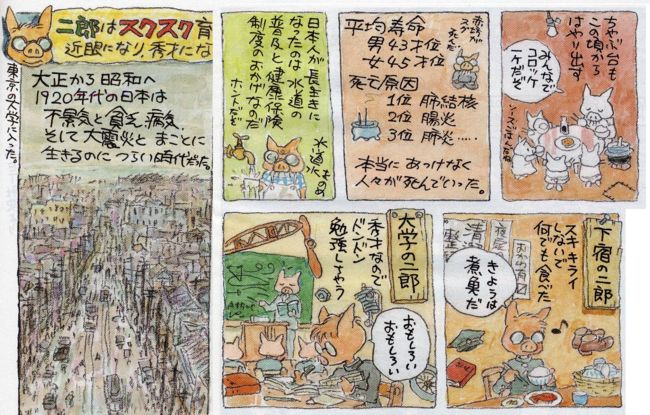 二郎はスクスク育
近眼になり、秀才にな
東京の大学に入った。
大正から昭和へ
1920年代の日本は
不景気と貧乏、病気、
そして大震災と まことに
生きるのに つらい時代だった。
ちゃぶ台も
この頃から
はやり出す
みんなで
コロッケ
一ケだぞ
平均寿命
男43才位
女45才位
死亡原因
1位 肺結核
2位 腸炎
3位 肺炎……
本当に あっけなく
人々が 死んでいった。
日本人が長生きに
なったのは 水道の
普及と健康保険
制度のおかげなのだ
ホントだぞ
下宿の二郎
スキキライ
しないで
何でも食べた
きょうは
煮魚だ
大学の二郎
秀才なので
ドンドン
勉強しちゃう
おもしろい
おもしろい